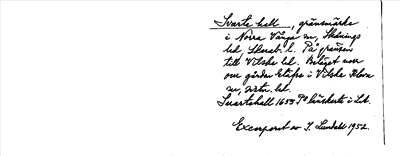 Svarte hall, gränsmärke
i Norra Vånga sn, Skånings
hd, Skarab. l. På gränsen
till Vilske hd. Beläget norr
om gården Stäpse i Vilske Kleva
sn, nämn. hd.
Svartehall 1653 På häradets i Lek.
Excerperat av I. Lundahl 1952.